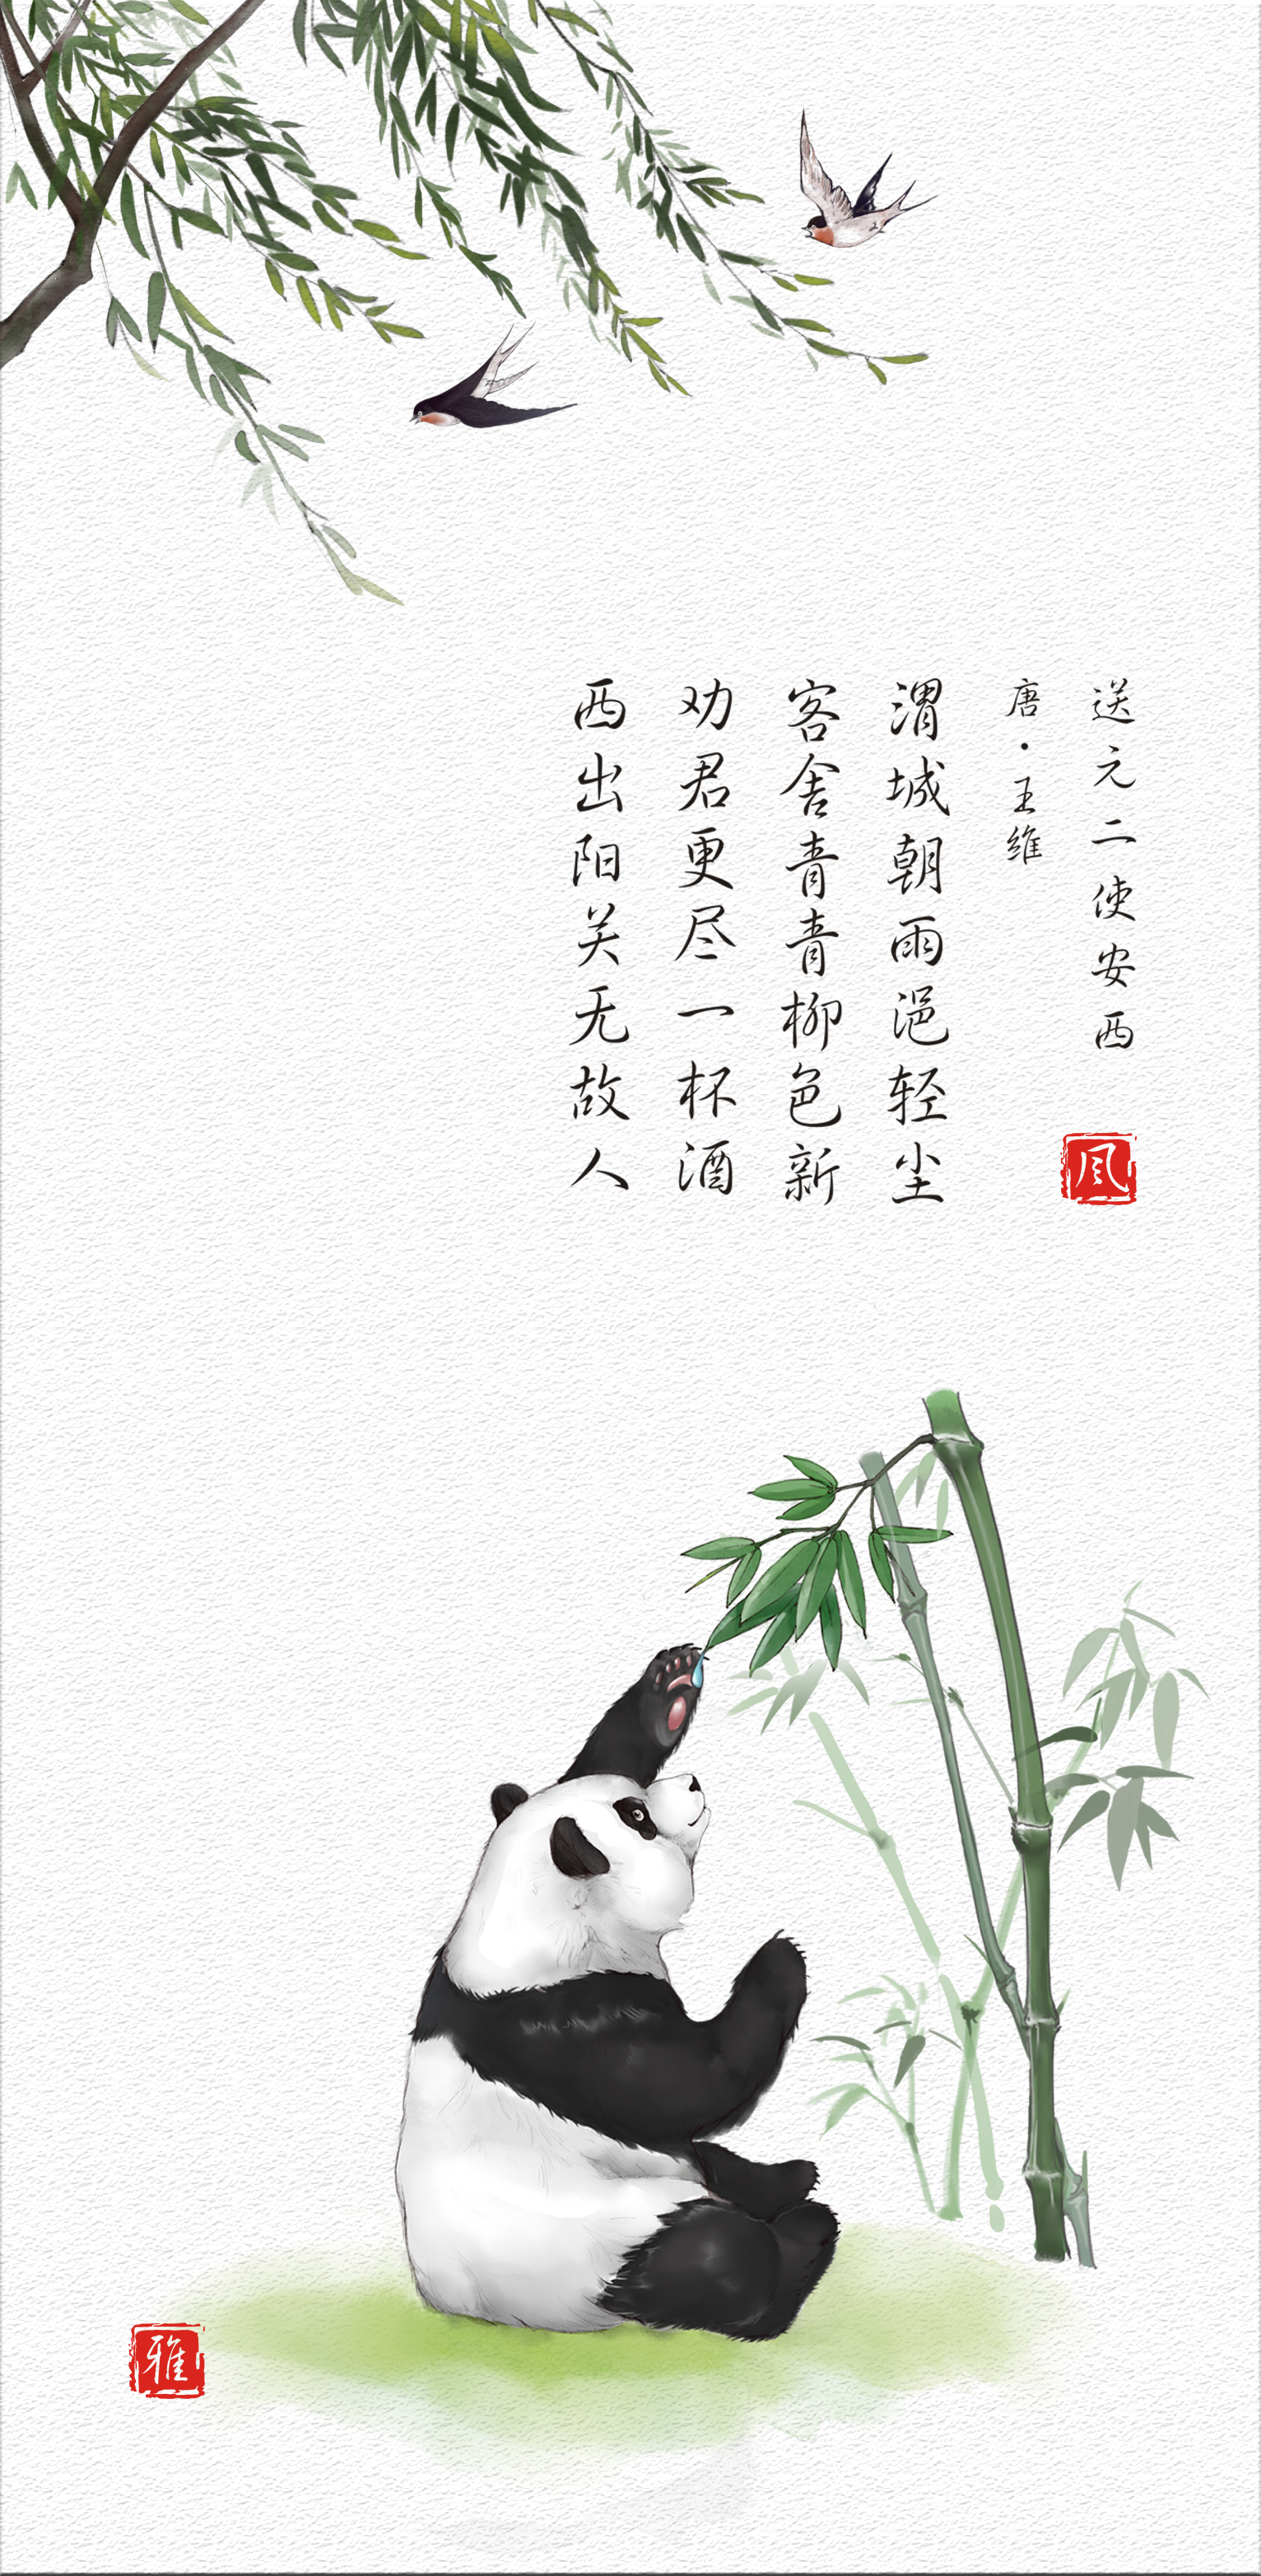 送元二使安西
唐·王维
渭城朝雨浥轻尘
客舍青青柳色新
劝君更尽一杯酒
西出阳关无故人
风
雅